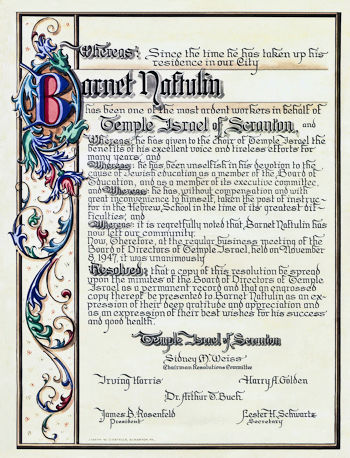 Whereas: Since the time he has taken up his
residence in our City
Barnet Naftulin
has been one of the most ardent workers in behalf of
Temple Israel of Scranton, and
Whereas: he has given to the choir of Temple Israel the
benefits of his excellent voice and tireless efforts for
many years; and
Whereas: he has been unselfish in his devotion to the
cause of Jewish education as a member of the Board of
Education, and as a member of its executive committee,
and Whereas: he has, without compensation and with
great inconvenience to himself, taken the post of instruc-
tor in the Hebrew School in the time of its greatest dif-
ficulties; and
Whereas: it is regretfully noted that, Barnet Naftulin has
now left our community;
Now, Therefore, at the regular business meeting of the
Board of Directors of Temple Israel, held on November
8, 1947, it was unanimously
Resolved: that a copy of this resolution be spread
upon the minutes of the Board of Directors of Temple
Israel as a permanent record and that an engrossed
copy thereof be presented to Barnet Naftulin as an ex-
pression of their deep gratitude and appreciation and
as an expression of their best wishes for his success
and good health.
Temple Israel of Scranton
Sidney M. Weiss
Chairman Resolutions Committee
Irving Harris Harry A. Golden
Dr. Arthur E. Buch
James B. Rosenfeld Lester H. Schwartz
President Secretary